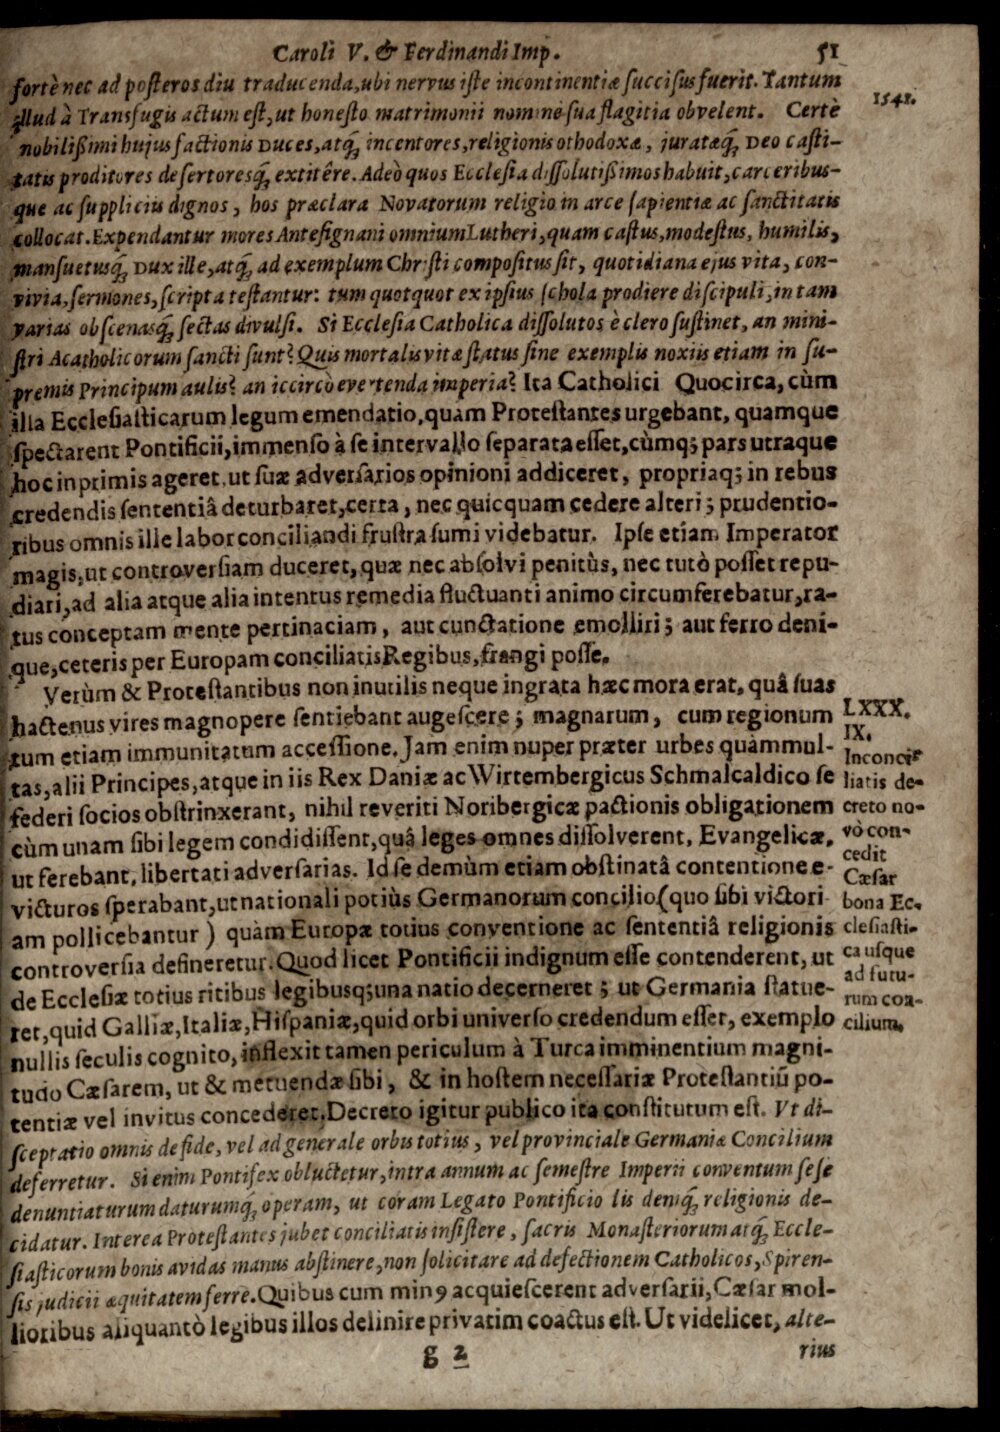 Caroli V. & Ferdinandi Imp. 51
fortè nec ad posteros diu traducenda, ubi nervus iste incontinentiæ succisus fuerit. Tantum
illud à Transfugis actum est, ut honesto matrimonii nomine sua flagitia obvelent. Certè
1541.
nobilißimi hujus factionis Duces, atq; incentores, religionis othodoxæ, juratæq; Deo casti-
tatis proditores desertoresq; extitêre. Adeò quos Ecclesia dissolutißimos habuit, carceribus-
que ac suppliciis dignos, hos præclara Novatorum religio in arce sapientiæ ac sanctitatis
collocat. Expendantur mores Antesignani omnium Lutheri, quam castus, modestus, humilis,
mansuetusq; Dux ille, atq; ad exemplum Christi compositus sit, quotidiana ejus vita, con-
vivia, sermones, scripta testantur: tum quotquot ex ipsius schola prodiere discipuli, in tam
varias obscenasq; sectas divulsi. Si Ecclesia Catholica dissolutos è clero sustinet, an mini-
stri Acatholicorum sancti sunt? Quis mortalis vitæ status sine exemplis noxiis etiam in su-
premis Principum aulis? an iccircò evertenda imperia? Ita Catholici Quocirca, cùm
illa Ecclesiasticarum legum emendatio, quam Protestantes urgebant, quamque
spectarent Pontificii, immenso à se intervallo separata esset, cùmq; pars utraque
hoc inprimis ageret, ut suæ adversarios opinioni addiceret, propriaq; in rebus
credendis sententiâ deturbaret, certa, nec quicquam cedere alteri; prudentio-
ribus omnis ille labor conciliandi frustra sumi videbatur. Ipse etiam Imperator
magis, ut controversiam duceret, quæ nec absolvi penitùs, nec tutò posset repu-
diari, ad alia atque alia intentus remedia fluctuanti animo circumferebatur, ra-
tus conceptam mente pertinaciam, aut cunctatione emolliri; aut ferro deni-
que, ceteris per Europam conciliatis Regibus, frangi posse.
Verùm & Protestantibus non inutilis neque ingrata hæc mora erat, quâ suas
hactenus vires magnopere sentiebant augescere; magnarum, cum regionum
tum etiam immunitatum accessione. Jam enim nuper præter urbes quàmmul-
tas, alii Principes, atque in iis Rex Daniæ ac Wirtembergicus Schmalcaldico se
federi socios obstrinxerant, nihil reveriti Noribergicæ pactionis obligationem
cùm unam sibi legem condidissent, quâ leges omnes dissolverent, Evangelicæ,
ut ferebant, libertati adversarias. Id se demùm etiam obstinatâ contentione e-
victuros sperabant, ut nationali potiùs Germanorum concilio (quo sibi victori
am pollicebantur) quàm Europæ totius conventione ac sententiâ religionis
controversia defineretur. Quod licet Pontificii indignum esse contenderent, ut
de Ecclesiæ totius ritibus legibusq; una natio decerneret; ut Germania statue-
ret, quid Galliæ, Italiæ, Hispaniæ, quid orbi universo credendum esset, exemplo
nullis seculis cognito, inflexit tamen periculum à Turca imminentium magni-
tudo Cæsarem, ut & metuendæ sibi, & in hostem necessariæ Protestantiũ po-
tentiæ vel invitus concederet. Decreto igitur publico ita constitutum est. Ut di-
sceptatio omnis de fide, vel ad generale orbis totius, vel provinciale Germaniæ Concilium
deferretur. Si enim Pontifex obluctetur, intra annum ac semestre Imperii conventum sese
denuntiaturum daturumq; operam, ut coram Legato Pontificio lis deniq; religionis de-
cidatur. Interea Protestantes jubet conciliatis insistere, sacris Monasteriorum atq; Eccle-
siasticorum bonis avidas manus abstinere, non solicitare ad defectionem Catholicos, Spiren-
sis judicii æquitatem ferre. Quibus cum minꝰ acquiescerent adversarii, Cæsar mol-
lioribus aliquantò legibus illos delinire privatim coactus est. Ut videlicet, alte-
g 2 rius
LXXX.
IX.
Inconci-
liatis de-
creto no-
vò con-
cedit
Cæsar
bona Ec-
clesiasti-
ca usque
ad futu-
rum con-
cilium.